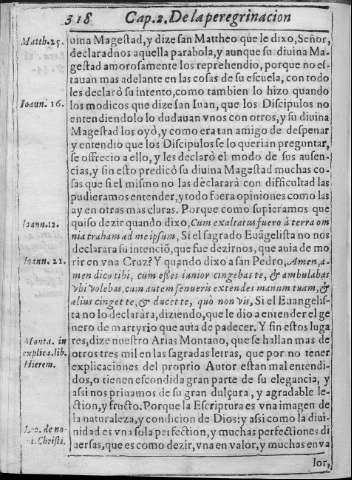 318 Cap. 2. De la peregrinacion
Matth. 25.
uina Magestad, y dize san Mattheo que le dixo, Señor,
declaradnos aquella parabola, y aunque su diuina Ma-
gestad amorosamente los reprehendio, porque no es-
tauan mas adelante en las cosas de su escuela, con todo
les declarò su intento, como tambien lo hizo quando
Ioann. 16.
los modicos que dize san Iuan, que los Discipulos no
entendiendolo lo dudauan vnos con otros, y su diuina
Magestad los oyò, y como era tan amigo de despenar
y entendio que los Discipulos se lo querian preguntar,
se offrecio a ello, y les declarò el modo de sus ausen-
cias, y sin esto predicó su diuina Magestad muchas co-
sas que si el mismo no las declarara con difficultad las
pudieramos entender, y todo fuera opiniones como las
ay en otras mas claras. Porque como supieramos que
Ioann. 12.
quiso dezir quando dixo, Cum exaltatus fuero à terra om
nia traham ad meipsum, Si el sagrado Euãgelista no nos
declarara su intenció, que fue dezirnos, que auia de mo
Ioann. 21.
rir en vna Cruz? Y quando dixo a san Pedro, Amen, a-
men dico tibi, cum esses iunior cingebas te, & ambulabas
vbi volebas, cum autem senueris extendes manum tuam, &
alius cinget te, & ducet te, quò non vis, Si el Euangelis-
ta no lo declarara, diziendo, que le dio a entender el ge
nero de martyrio que auia de padecer. Y sin estos luga
Monta. in
explica. lib.
Hierem.
res, dize nuestro Arias Montano, que se hallan mas de
otros tres mil en las sagradas letras, que por no tener
explicaciones del proprio Autor estan mal entendi-
dos, o tienen escondida gran parte de su elegancia, y
assi nos priuamos de su gran dulçura, y agradable le-
ction, y fructo. Porque la Escriptura es vna imagen de
la naturaleza, y condicion de Dios: y assi como la diui-
de na-
t. Christi.
nidad es vna sola perfection, y muchas perfectiones di
uersas, que es como dezir, vna en valor, y muchas en va
lor,